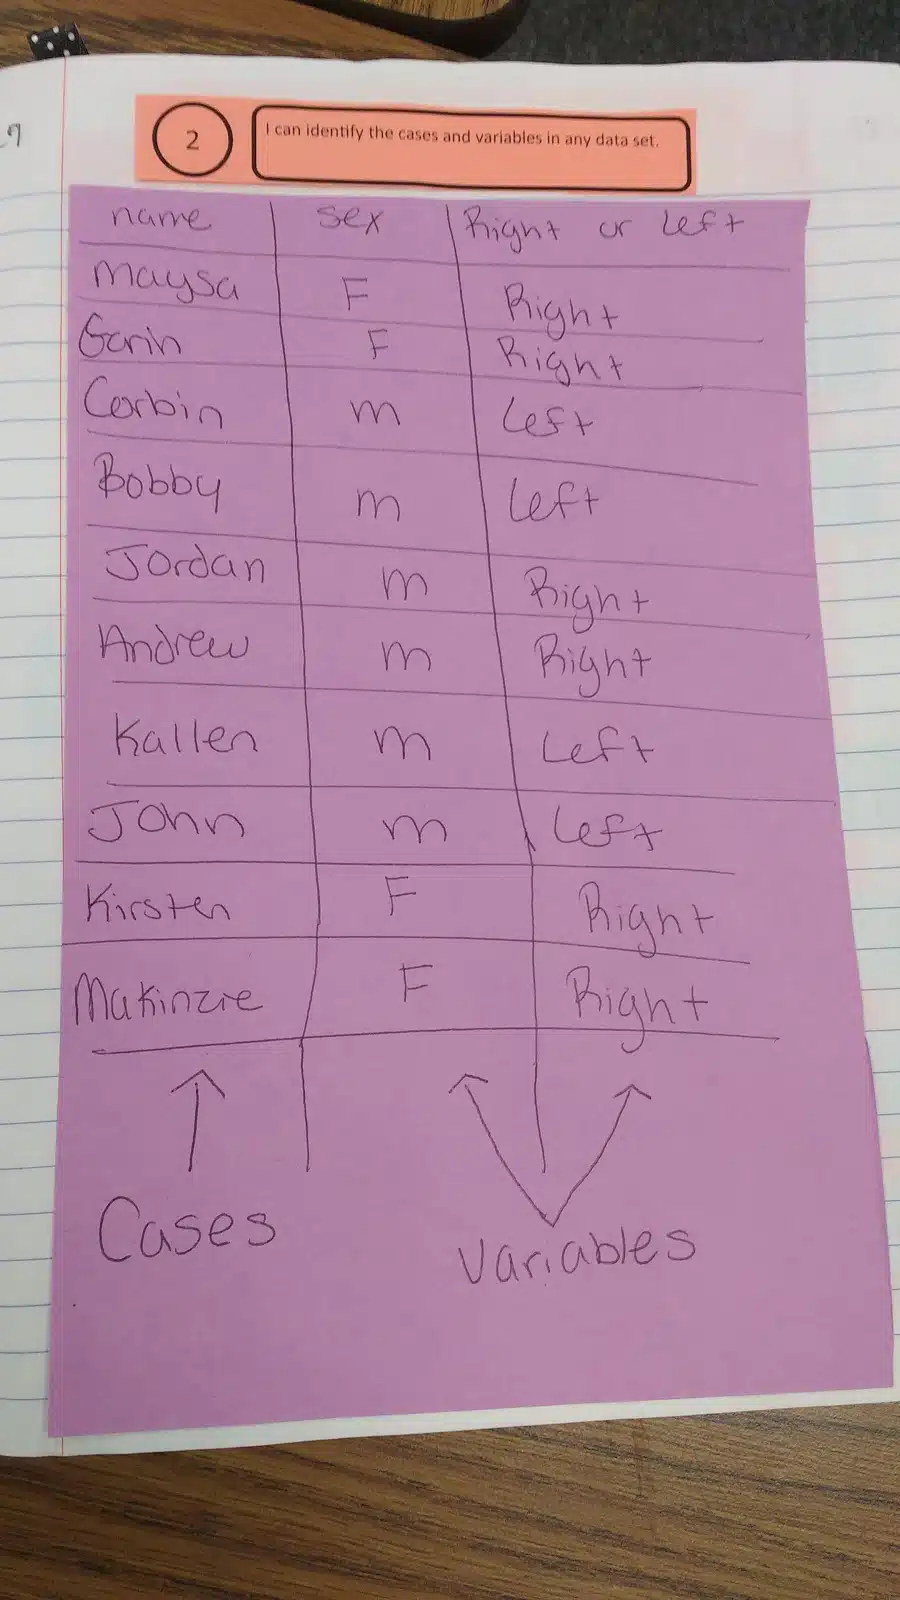 2
I can identify the cases and variables in any data set.
name sex Right or Left
Maysa F Right
Garin F Right
Corbin m Left
Bobby m Left
Jordan m Right
Andrew m Right
Kallen m Left
John m Left
Kirsten F Right
Makinzie F Right
Cases
Variables